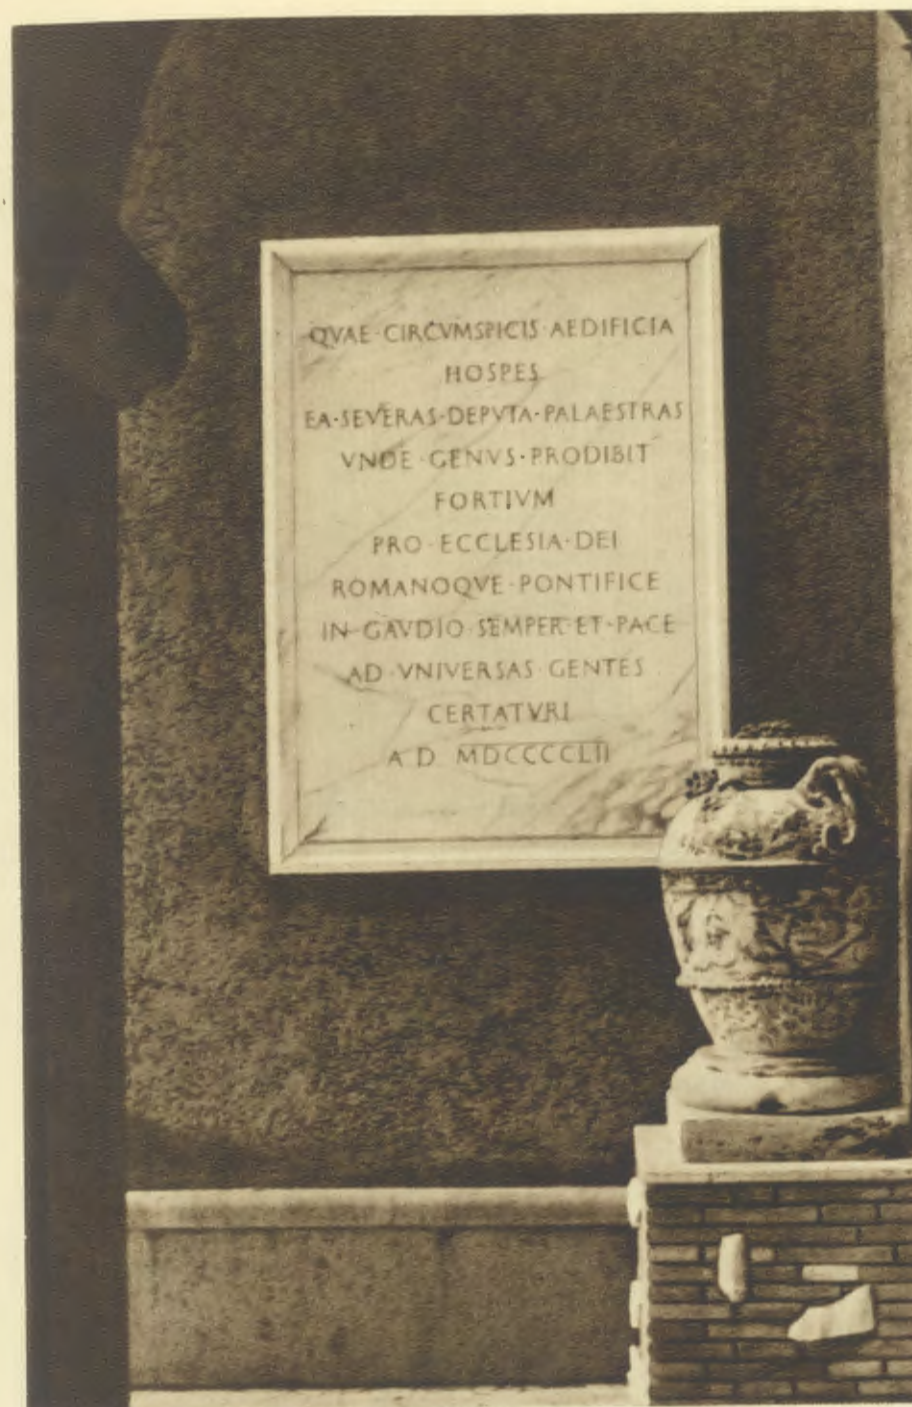 QVAE·CIRCVMSPICIS·AEDIFICIA
HOSPES
EA·SEVERAS·DEPVTA·PALAESTRAS
VNDE·GENVS·PRODIBIT
FORTIVM
PRO·ECCLESIA·DEI
ROMANOQVE·PONTIFICE
IN·GAVDIO·SEMPER·ET·PACE
AD·VNIVERSAS·GENTES
CERTATVRI
A D MDCCCCLII